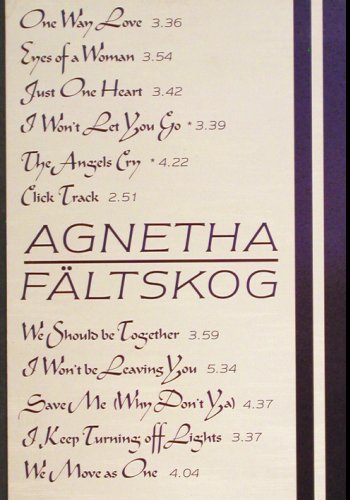 One Way Love 3.36
Eyes of a Woman 3.54
Just One Heart 3.42
I Won't Let You Go * 3.39
The Angels Cry * 4.22
Click Track 2.51
AGNETHA
FÄLTSKOG
We Should be Together 3.59
I Won't be Leaving You 5.34
Save Me (Why Don't Ya) 4.37
I Keep Turning off Lights 3.37
We Move as One 4.04